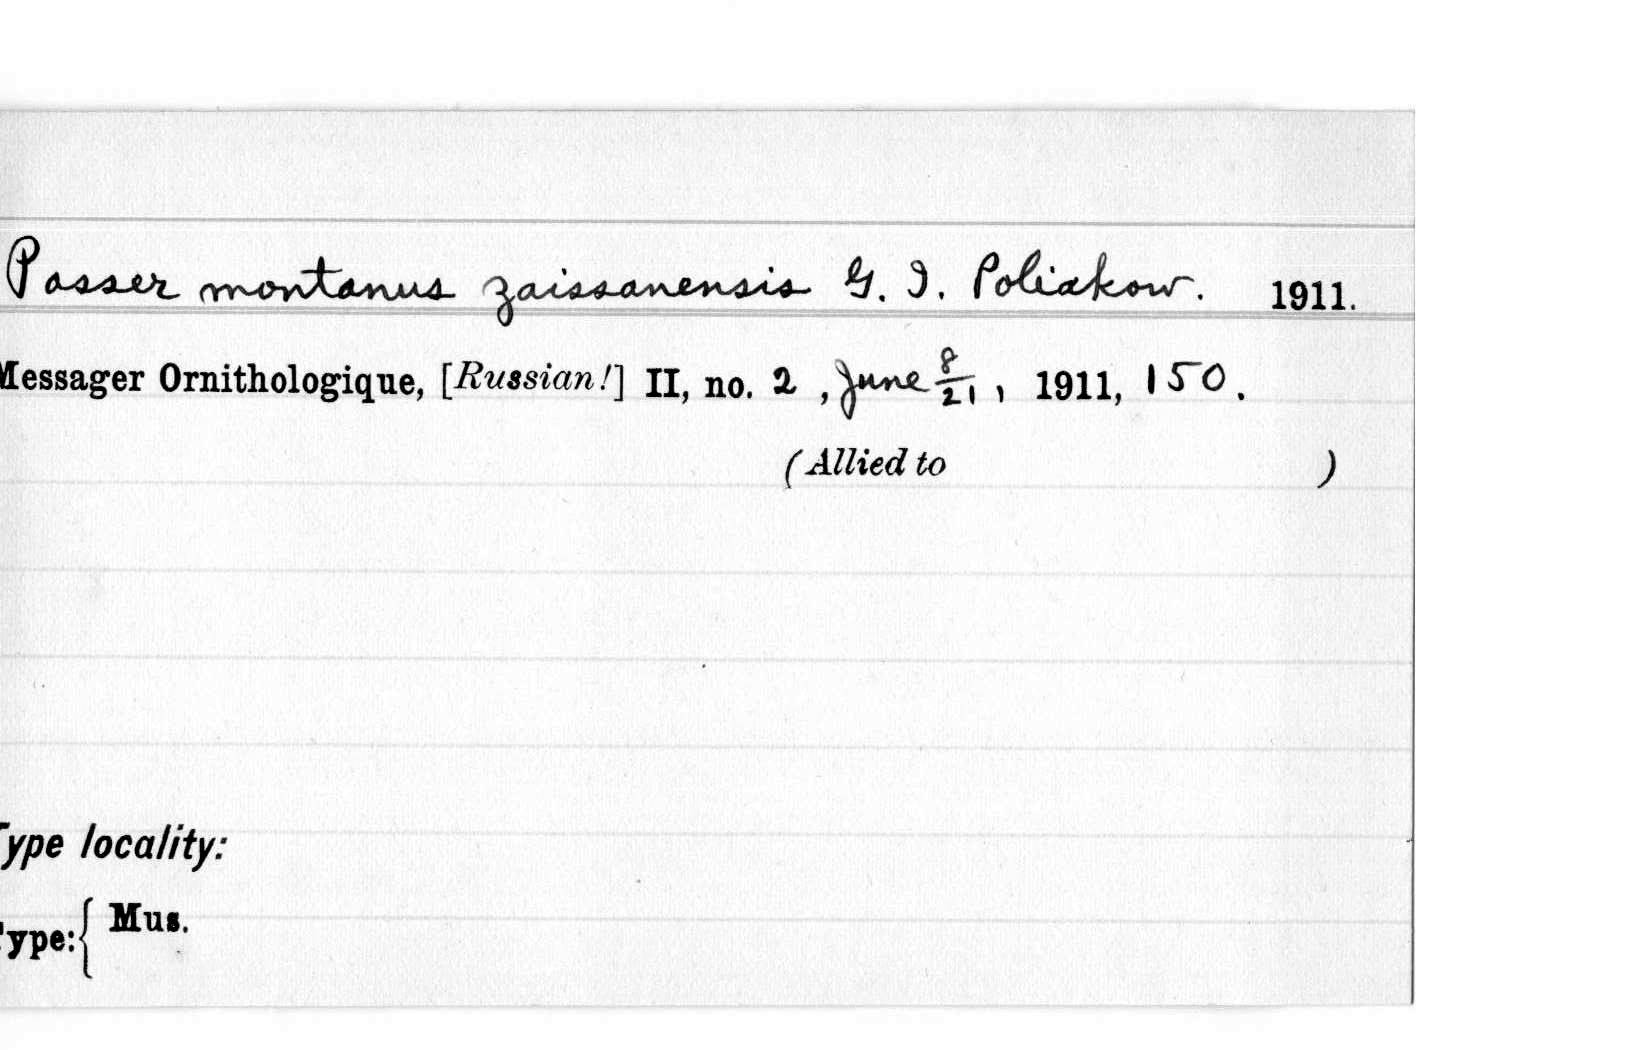 Passer montanus zaissanensis G. I. Poliakow. 1911.
Messager Ornithologique, [Russian!] II, no. 2, June 8/21, 1911, 150.
(Allied to )
Type locality:
Type: { Mus.